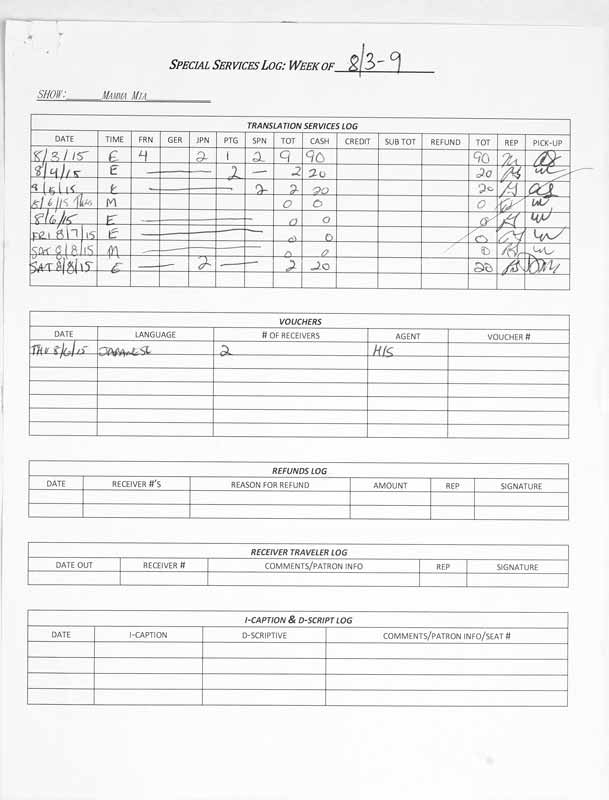 SPECIAL SERVICES LOG: WEEK OF 8/3-9
SHOW: MAMMA MIA
TRANSLATION SERVICES LOG
DATE TIME FRN GER JPN PTG SPN TOT CASH CREDIT SUB TOT REFUND TOT REP PICK-UP
8/3/15 E 4 2 1 2 9 90 90
8/4/15 E 2 — 2 20 20
8/5/15 E 2 2 20 20
8/6/15 THURS M 0 0 0
8/6/15 E 0 0 0
FRI 8/7/15 E 0 0 0
SAT 8/8/15 M 0 0 0
SAT 8/8/15 E — 2 — 2 20 20
VOUCHERS
DATE LANGUAGE # OF RECEIVERS AGENT VOUCHER #
THU 8/6/15 JAPANESE 2 HIS
REFUNDS LOG
DATE RECEIVER #'S REASON FOR REFUND AMOUNT REP SIGNATURE
RECEIVER TRAVELER LOG
DATE OUT RECEIVER # COMMENTS/PATRON INFO REP SIGNATURE
I-CAPTION & D-SCRIPT LOG
DATE I-CAPTION D-SCRIPTIVE COMMENTS/PATRON INFO/SEAT #